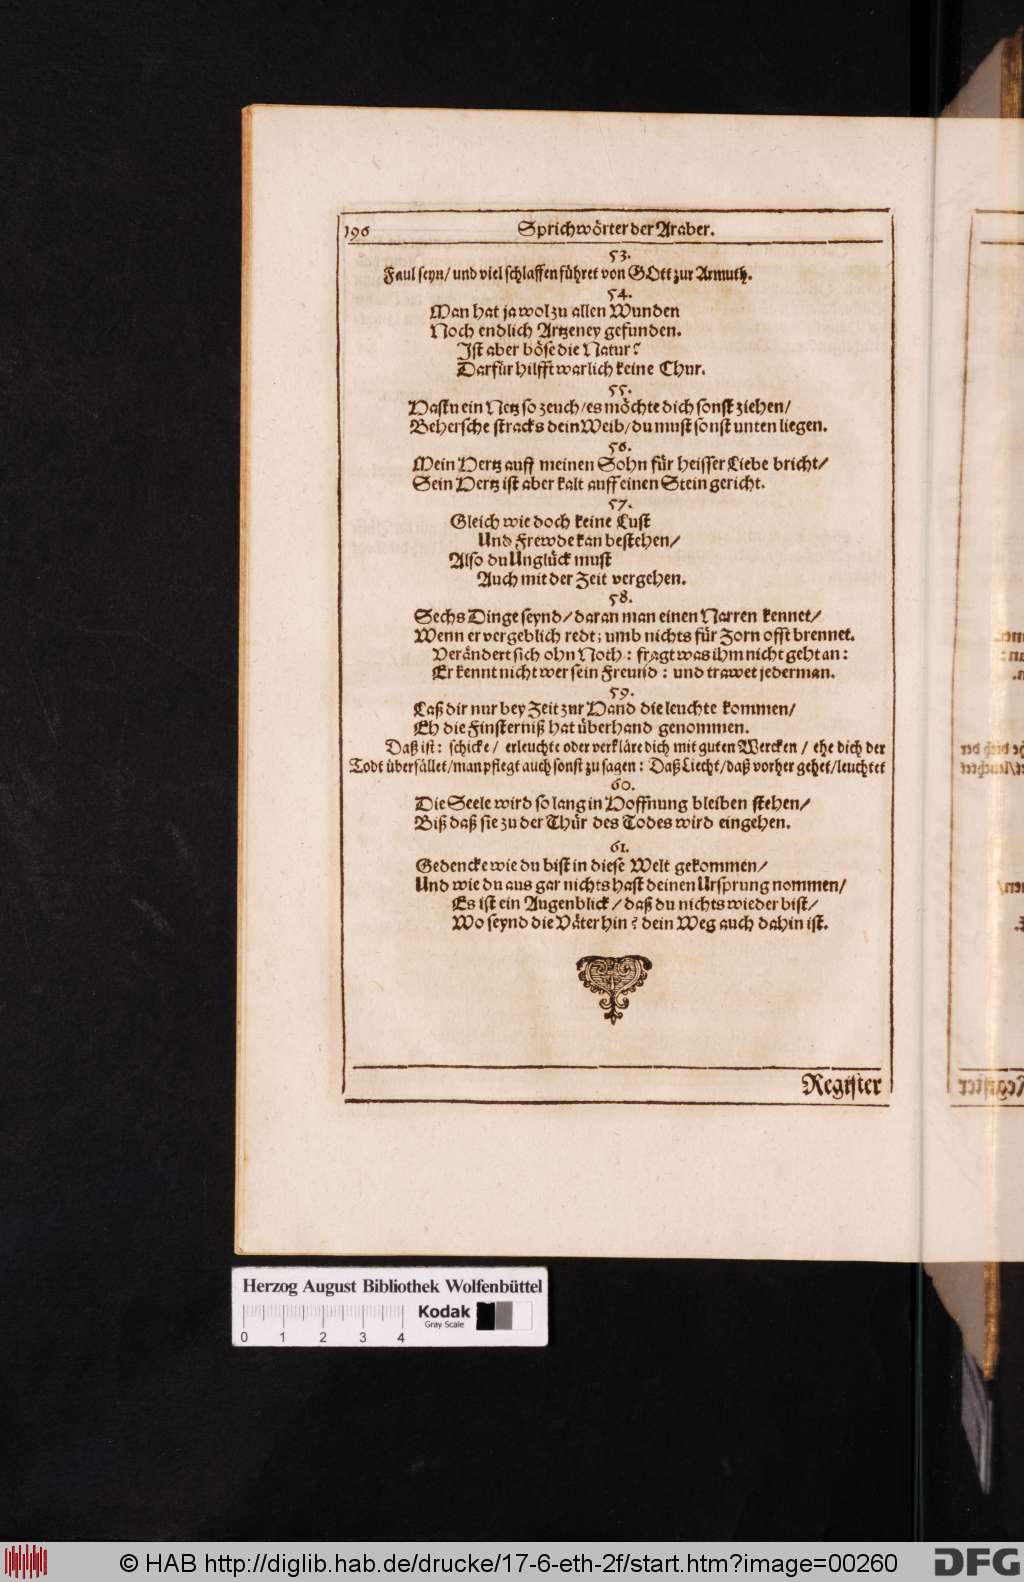 196 Sprichwörter der Araber.
53.
Faul seyn/ und viel schlaffen führet von GOtt zur Armuth.
54.
Man hat ja wol zu allen Wunden
Noch endlich Artzeney gefunden.
Ist aber böse die Natur?
Darfür hilfft warlich keine Chur.
55.
Hastu ein Netz so zeuch/ es möchte dich sonst ziehen/
Behersche stracks dein Weib/ du must sonst unten liegen.
56.
Mein Hertz auff meinen Sohn für heisser Liebe bricht/
Sein Hertz ist aber kalt auff einen Stein gericht.
57.
Gleich wie doch keine Lust
Und Frewde kan bestehen/
Also du Unglück must
Auch mit der Zeit vergehen.
58.
Sechs Dinge seynd/ daran man einen Narren kennet/
Wenn er vergeblich redt; umb nichts für Zorn offt brennet.
Verändert sich ohn Noth: fragt was ihm nicht geht an:
Er kennt nicht wer sein Freund: und trawet jederman.
59.
Laß dir nur bey Zeit zur Hand die leuchte kommen/
Eh die Finsterniß hat überhand genommen.
Daß ist: schicke/ erleuchte oder verkläre dich mit guten Wercken/ ehe dich der
Todt überfället/ man pflegt auch sonst zu sagen: Daß Liecht/ daß vorher gehet/ leuchtet
60.
Die Seele wird so lang in Hoffnung bleiben stehen/
Biß daß sie zu der Thür des Todes wird eingehen.
61.
Gedencke wie du bist in diese Welt gekommen/
Und wie du aus gar nichts hast deinen Ursprung nommen/
Es ist ein Augenblick/ daß du nichts wieder bist/
Wo seynd die Väter hin? dein Weg auch dahin ist.
Register
Herzog August Bibliothek Wolfenbüttel
0 1 2 3 4
Kodak
Gray Scale
© HAB http://diglib.hab.de/drucke/17-6-eth-2f/start.htm?image=00260
DFG